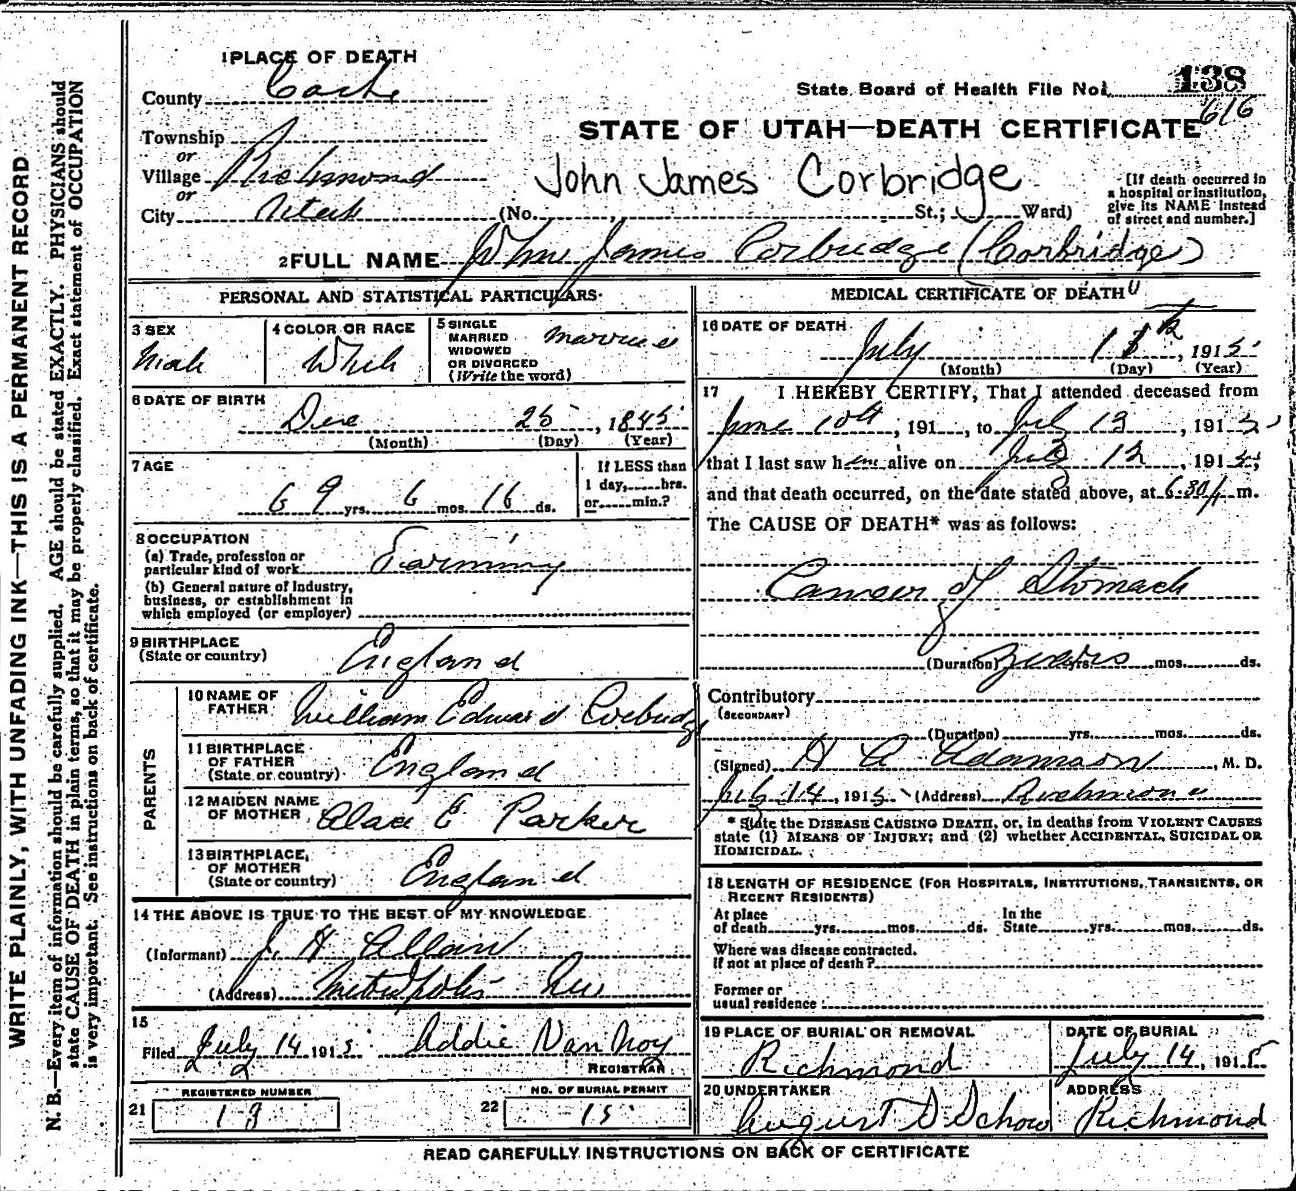 WRITE PLAINLY, WITH UNFADING INK—THIS IS A PERMANENT RECORD
N. B.—Every item of information should be carefully supplied. AGE should be stated EXACTLY. PHYSICIANS should
state CAUSE OF DEATH in plain terms, so that it may be properly classified. Exact statement of OCCUPATION
is very important. See instructions on back of certificate.
1 PLACE OF DEATH
County Cache
State Board of Health File No. 138
616
Township
or
Village Richmond
or
City Utah
STATE OF UTAH—DEATH CERTIFICATE
John James Corbridge
(No. St.; Ward)
[If death occurred in
a hospital or institution,
give its NAME instead
of street and number.]
2 FULL NAME John James Corbridge (Corbridge)
PERSONAL AND STATISTICAL PARTICULARS
3 SEX
Male
4 COLOR OR RACE
White
5 SINGLE
MARRIED
WIDOWED
OR DIVORCED
(Write the word)
Married
6 DATE OF BIRTH
Dec 25, 1845
(Month) (Day) (Year)
7 AGE
69 yrs. 6 mos. 16 ds.
If LESS than
1 day, hrs.
or min.?
8 OCCUPATION
(a) Trade, profession or
particular kind of work Farming
(b) General nature of Industry,
business, or establishment in
which employed (or employer)
9 BIRTHPLACE
(State or country) England
PARENTS
10 NAME OF
FATHER William Edward Corbridge
11 BIRTHPLACE
OF FATHER
(State or country) England
12 MAIDEN NAME
OF MOTHER E Parker
13 BIRTHPLACE
OF MOTHER
(State or country) England
14 THE ABOVE IS TRUE TO THE BEST OF MY KNOWLEDGE
(Informant) J. H.
(Address) Metropolis Nev
15
Filed July 14 1915 Addie Van Noy
REGISTRAR
REGISTERED NUMBER
21
NO. OF BURIAL PERMIT
22 15
MEDICAL CERTIFICATE OF DEATH
16 DATE OF DEATH
July 13th, 1915
(Month) (Day) (Year)
17 I HEREBY CERTIFY, That I attended deceased from
June 10th, 191 , to July 13, 1915,
that I last saw him alive on July 12, 1915,
and that death occurred, on the date stated above, at 6:30 m.
The CAUSE OF DEATH* was as follows:
Cancer of Stomach
(Duration) years yrs. mos. ds.
Contributory
(SECONDARY)
(Duration) yrs. mos. ds.
(Signed) Adamson, M. D.
July 14, 1915 (Address) Richmond
* State the DISEASE CAUSING DEATH, or, in deaths from VIOLENT CAUSES
state (1) MEANS OF INJURY; and (2) whether ACCIDENTAL, SUICIDAL OR
HOMICIDAL.
18 LENGTH OF RESIDENCE (FOR HOSPITALS, INSTITUTIONS, TRANSIENTS, OR
RECENT RESIDENTS)
At place
of death yrs. mos. ds.
In the
State yrs. mos. ds.
Where was disease contracted,
If not at place of death?
Former or
usual residence
19 PLACE OF BURIAL OR REMOVAL
Richmond
DATE OF BURIAL
July 14, 1915
20 UNDERTAKER
August S Schow
ADDRESS
Richmond
READ CAREFULLY INSTRUCTIONS ON BACK OF CERTIFICATE